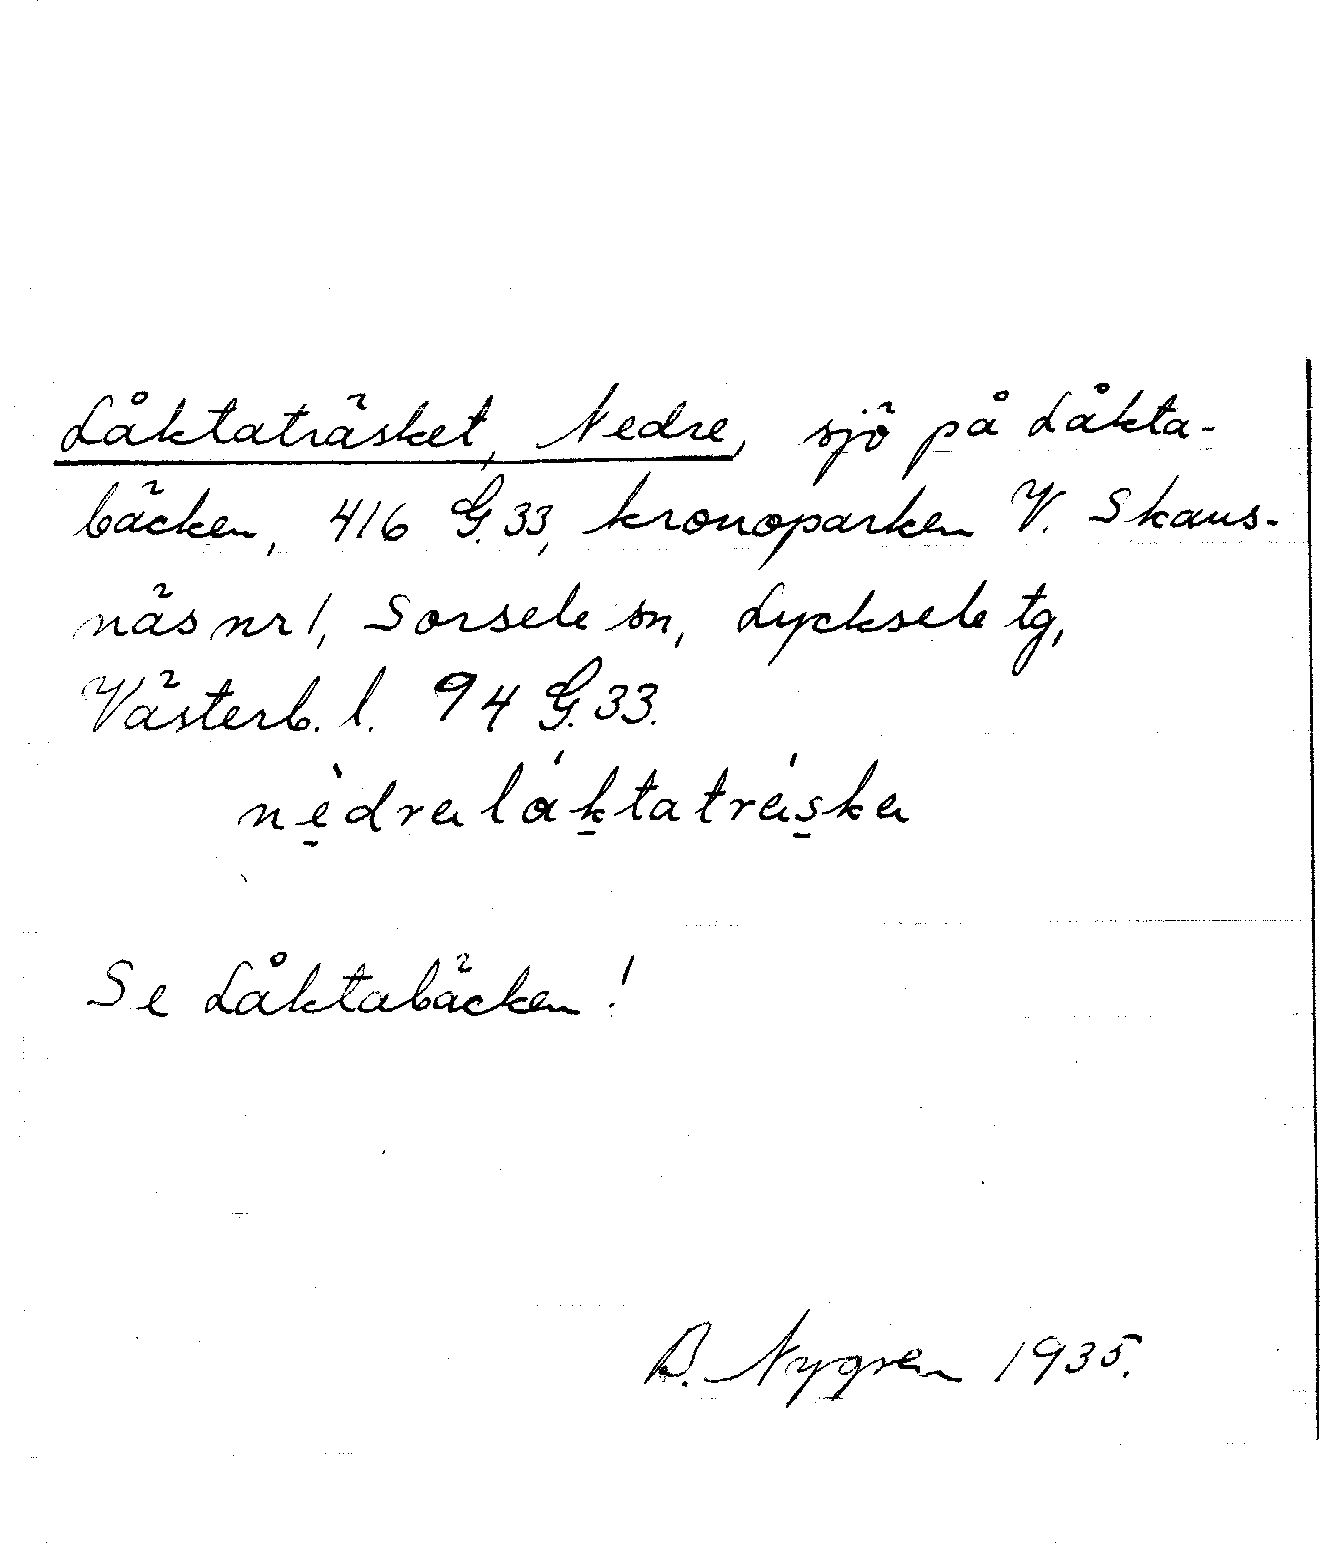 Låktaträsket, Nedre, sjö på Låkta-
bäcken, 416 G.33, kronoparken V. Skaus-
näs nr 1, Sorsele sn, Lycksele tg,
Västerb. l. 94 G.33.
nè̱dra láḵtatrás̱ka
Se Låktabäcken!
B. Nygren 1935.